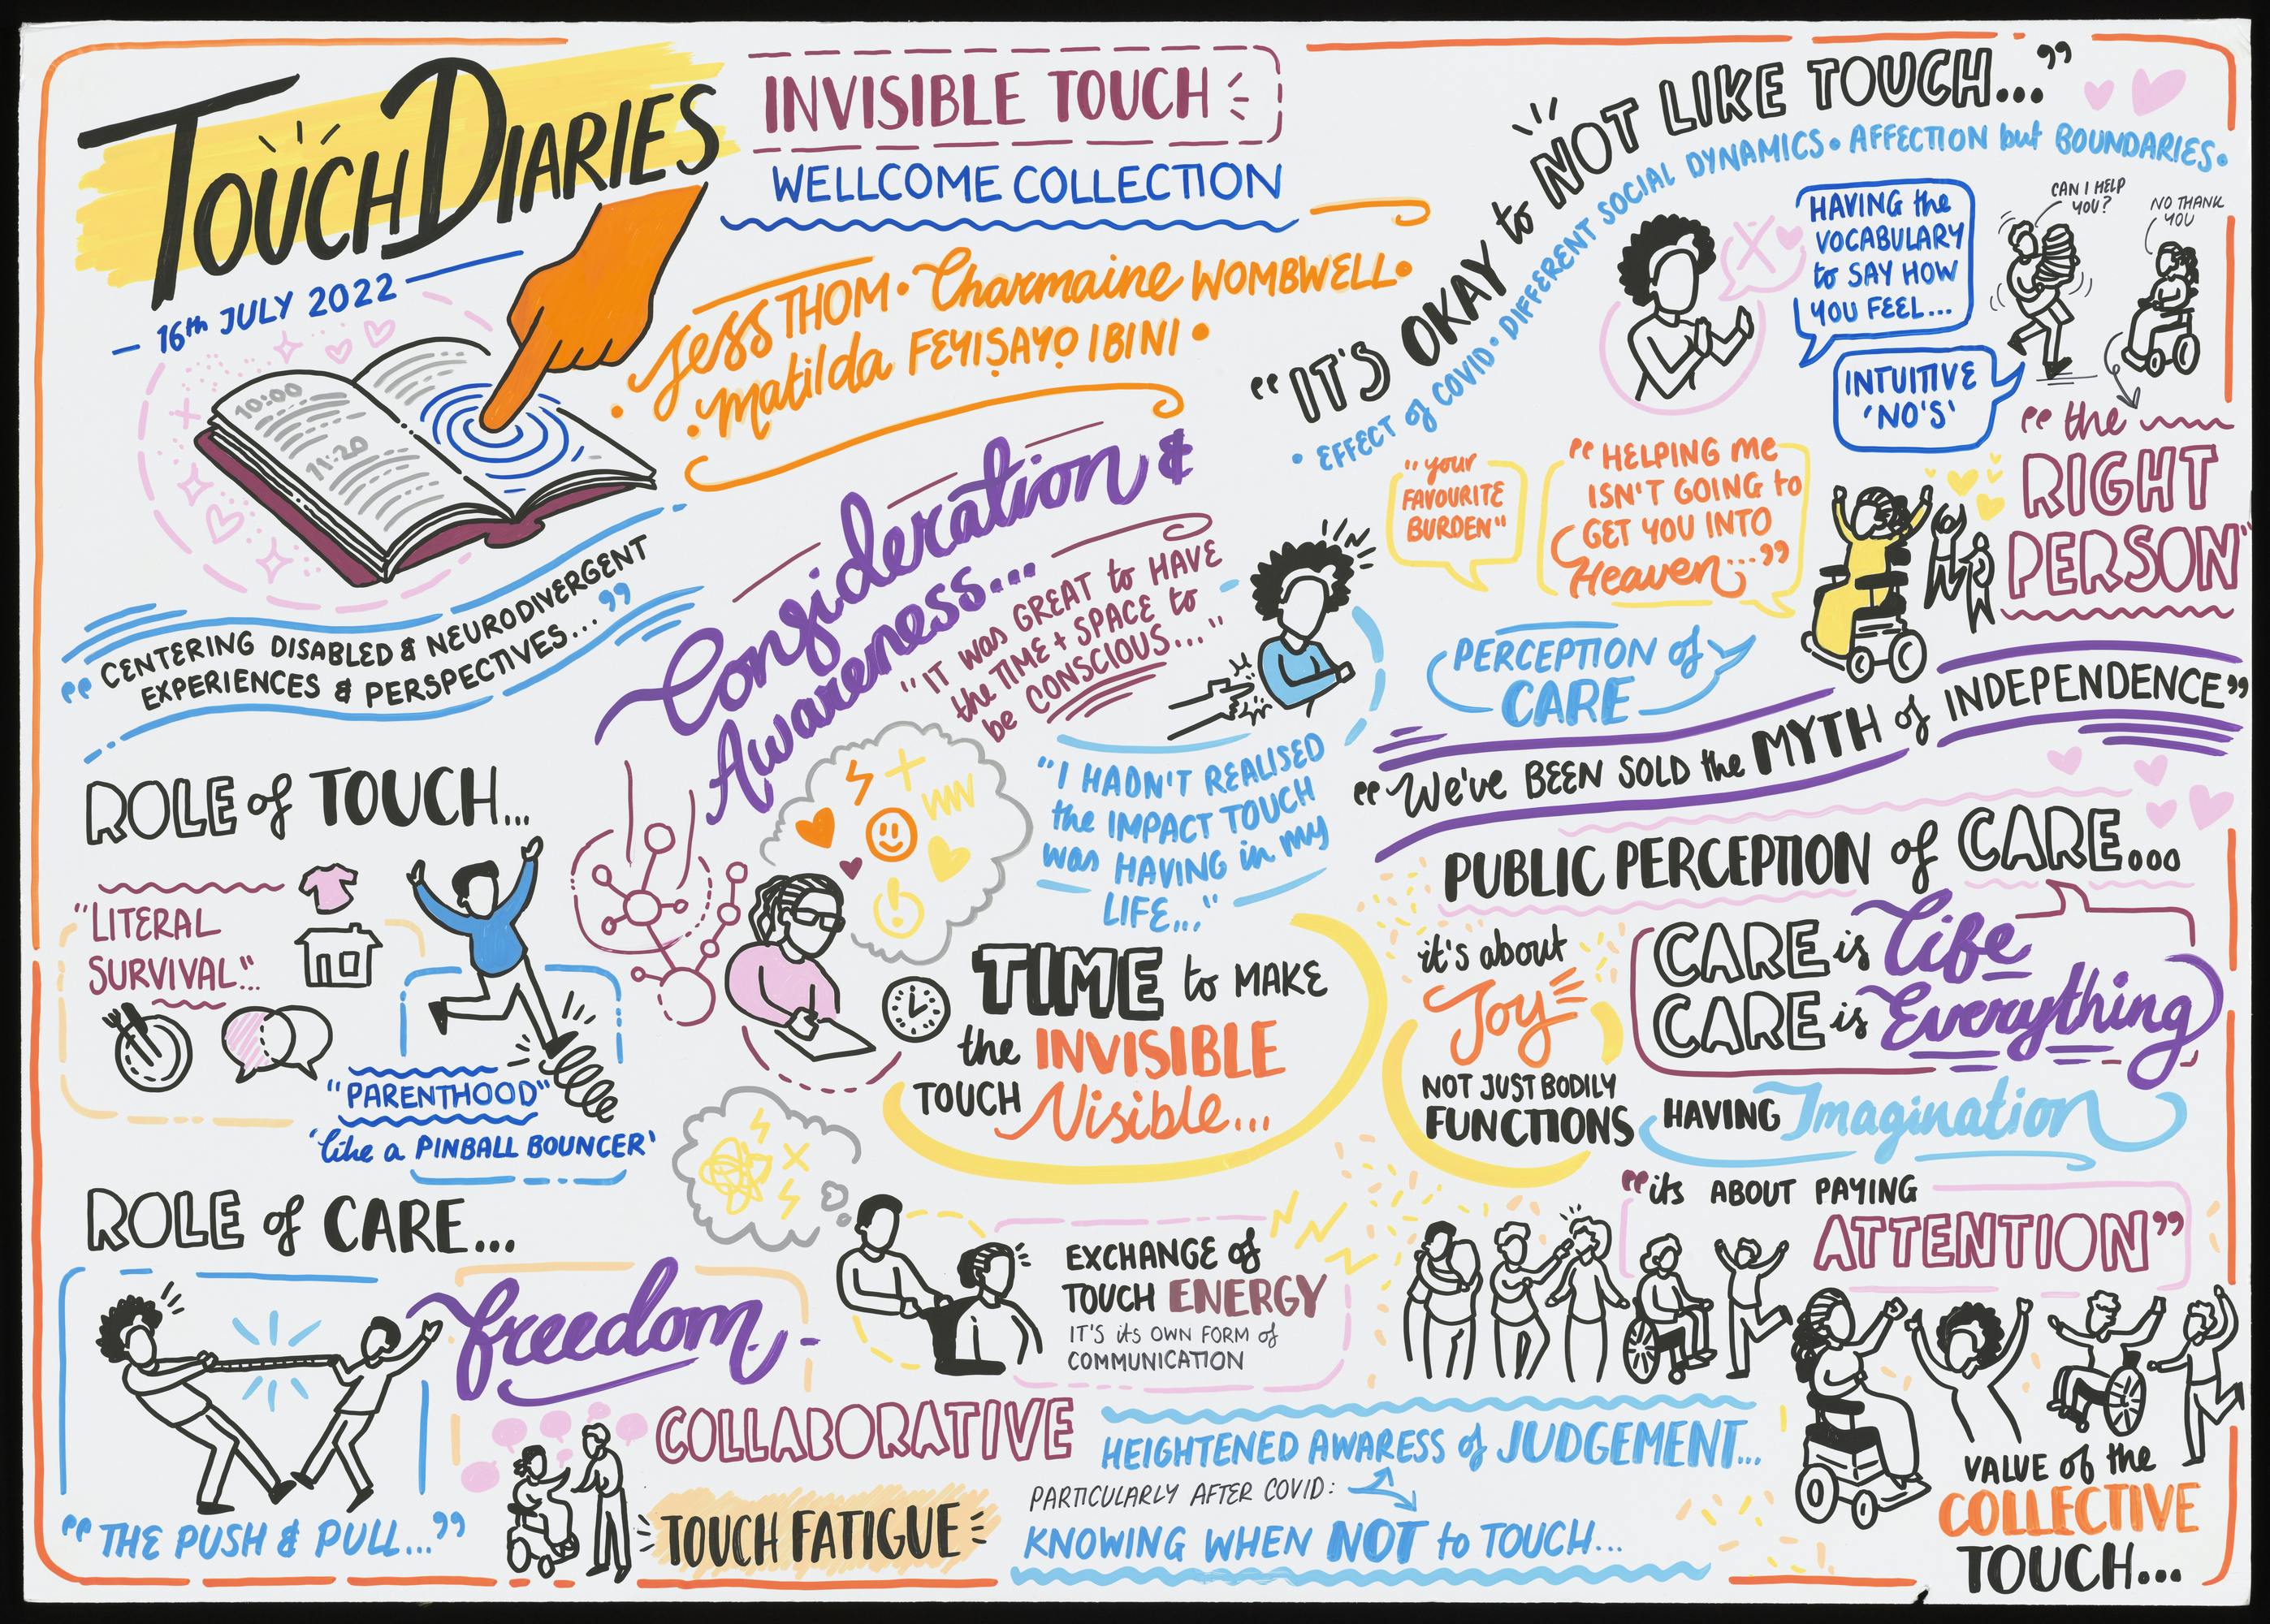 TOUCH DIARIES
16th JULY 2022
INVISIBLE TOUCH
WELLCOME COLLECTION
JESS THOM • Charmaine WOMBWELL •
• Matilda FEYIṢAYỌ IBINI •
10:00
11:20
"CENTERING DISABLED & NEURODIVERGENT
EXPERIENCES & PERSPECTIVES..."
Consideration &
Awareness...
"IT was GREAT to HAVE
the TIME + SPACE to
be CONSCIOUS..."
"I HADN'T REALISED
the IMPACT TOUCH
was HAVING in my
LIFE..."
"IT'S OKAY to NOT LIKE TOUCH..."
• EFFECT of COVID • DIFFERENT SOCIAL DYNAMICS • AFFECTION but BOUNDARIES •
HAVING the
VOCABULARY
to SAY HOW
YOU FEEL...
INTUITIVE
'NO'S'
CAN I HELP
YOU?
NO THANK
YOU
"the
RIGHT
PERSON"
"your
FAVOURITE
BURDEN"
"HELPING ME
ISN'T GOING to
GET YOU INTO
Heaven..."
PERCEPTION of
CARE
"We've BEEN SOLD the MYTH of INDEPENDENCE"
ROLE of TOUCH...
"LITERAL
SURVIVAL"..
"PARENTHOOD"
'like a PINBALL BOUNCER'
TIME to MAKE
the INVISIBLE
TOUCH Visible...
PUBLIC PERCEPTION of CARE...
it's about
Joy
NOT JUST BODILY
FUNCTIONS
CARE is Life
CARE is Everything
HAVING Imagination
"its ABOUT PAYING
ATTENTION"
ROLE of CARE...
freedom
"THE PUSH & PULL..."
COLLABORATIVE
TOUCH FATIGUE
EXCHANGE of
TOUCH ENERGY
IT'S its OWN FORM of
COMMUNICATION
HEIGHTENED AWARESS of JUDGEMENT...
PARTICULARLY AFTER COVID:
KNOWING WHEN NOT to TOUCH...
VALUE of the
COLLECTIVE
TOUCH...